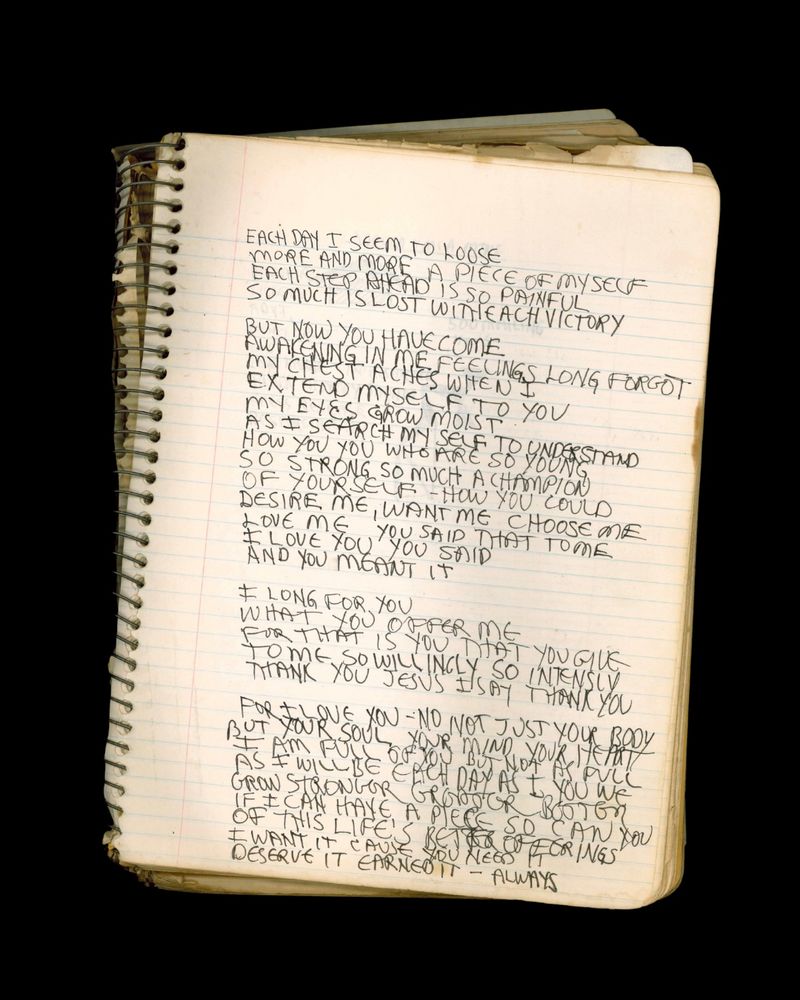 EACH DAY I SEEM TO LOOSE
MORE AND MORE A PIECE OF MYSELF
EACH STEP AHEAD IS SO PAINFUL
SO MUCH IS LOST WITH EACH VICTORY
BUT NOW YOU HAVE COME
AWAKENING IN ME FEELINGS LONG FORGOT
MY CHEST ACHES WHEN I
EXTEND MYSELF TO YOU
MY EYES GROW MOIST
AS I SEARCH MY SELF TO UNDERSTAND
HOW YOU YOU WHO ARE SO YOUNG
SO STRONG SO MUCH A CHAMPION
OF YOURSELF - HOW YOU COULD
DESIRE ME, WANT ME CHOOSE ME
LOVE ME YOU SAID THAT TO ME
I LOVE YOU YOU SAID
AND YOU MEANT IT
I LONG FOR YOU
WHAT YOU OFFER ME
FOR THAT IS YOU THAT YOU GIVE
TO ME SO WILLINGLY SO INTENSLY
THANK YOU JESUS I SAY THANK YOU
FOR I LOVE YOU - NO NOT JUST YOUR BODY
BUT YOUR SOUL YOUR MIND YOUR HEART
I AM FULL OF YOU BUT NOT AS FULL
AS I WILL BE EACH DAY AS I YOU WE
GROW STRONGER GREATER BETTER
IF I CAN HAVE A PIECE SO CAN YOU
OF THIS LIFE'S BETTER OFFERINGS
I WANT IT CAUSE YOU NEED IT
DESERVE IT EARNED IT - ALWAYS